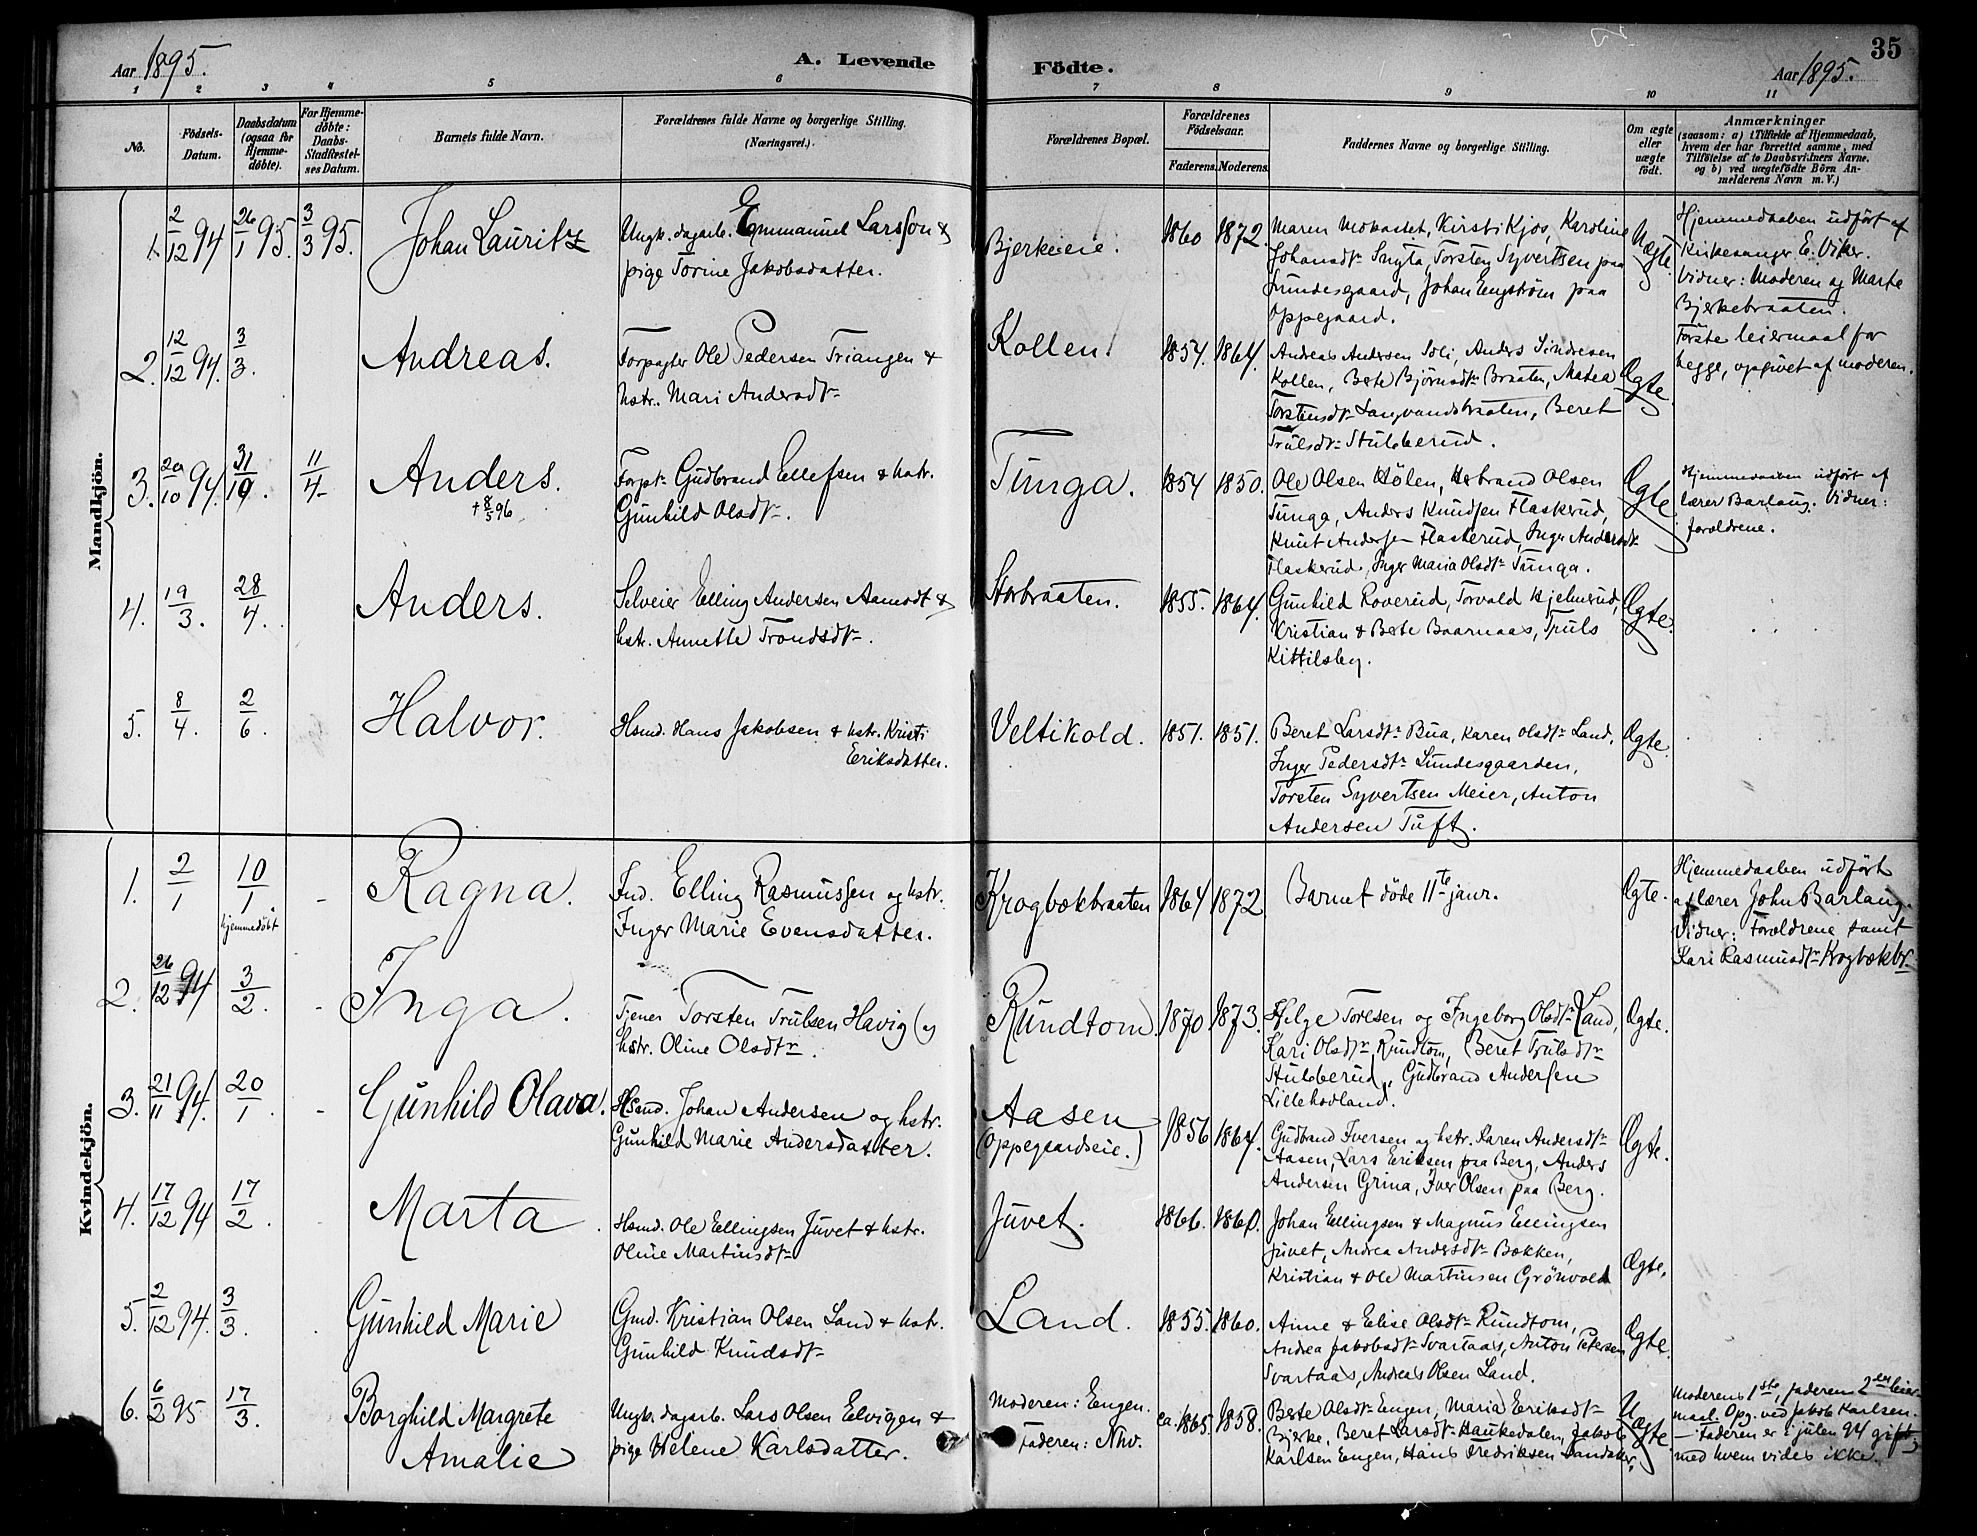 Aar 1895.
A. Levende
Födte.
Aar 1895.
35
1 2 3 4 5 6 7 8 9 10 11
No.
Födsels-
Datum.
Daabsdatum
(ogsaa for
Hjemme-
döbte).
For Hjemme-
döbte:
Daabs-
Stadfæstel-
ses Datum.
Barnets fulde Navn.
Forældrenes fulde Navne og borgerlige Stilling.
(Næringsvei.)
Forældrenes Bopæl.
Forældrenes
Födselsaar.
Faderens. Moderens.
Faddernes Navne og borgerlige Stilling.
Om ægte
eller
uægte
födt.
Anmærkninger
(saasom: a) i Tilfælde af Hjemmedaab,
hvem der har forrettet samme, med
Tilföielse af to Daabsvidners Navne.
og b) ved uægtefödte Börn An-
melderens Navn m. V.)
Mandkjön.
1. 2/12 94 26/1 95. 3/3 95.
Johan Lauritz
Ungk. dagarb. Emmanuel Larsson &
pige Torine Jakobsdatter.
Bjerkeeie.
1860 1872.
Maren Mokastet, Kirsti Kjos, Karoline
Johansdtr Sugta, Torsten Syvertsen paa
Lundesgaard, Johan Engström paa
Oppegaard.
Uægte.
Hjemmedaaben udfört af
Kirkesanger E. Viker.
Vidner: Moderen og Marte
Bjerkebraaten.
Förste leiermaal for
begge, opgivet af moderen.
2. 12/12 94. 3/3.
Andreas.
Forpagter Ole Pedersen Triangen &
hstr. Mari Andersdtr
Kollen.
1854. 1864.
Andreas Andersen Soli, Anders Sindresen
Kollen, Berte Björnsdtr Braaten, Matea
Torstensdtr Langvandsbraaten, Beret
Trulsdtr Stubberud.
Ægte.
3. 20/10 94. 31/10. 11/4
Anders.
+ 8/5 96
Forpt. Gudbrand Ellefsen & hstr.
Gunhild Olsdtr.
Tunga.
1854 1850.
Ole Olsen Hölen, Herbrand Olsen
Tunga, Anders Knudsen Flaskerud,
Knut Andersen Flaskerud, Inger Andersdtr
Flaskerud, Inger Maria Olsdtr Tunga.
Ægte
Hjemmedaaben udfört af
lærer Barlaug. Vidner:
forældrene.
4. 19/3. 28/4.
Anders.
Selveier Elling Andersen Aamodt &
hstr. Annette Trondsdtr.
Storbraaten.
1855. 1864.
Gunhild Roverud, Torvald Hjelmerud,
Kristian & Berte Baarnaas, Truls
Kittilsby.
Ægte.
5. 8/4. 2/6.
Halvor.
Hsmd. Hans Jakobsen & hstr. Kristi
Eriksdatter.
Veltikold.
1851. 1851.
Beret Larsdtr Bua, Karen Olsdtr Land,
Inger Pedersdtr Lundesgaarden,
Torsten Syvertsen Meier, Anton
Andersen Tuft.
Ægte.
Kvindekjön.
1. 2/1 10/1
hjemmedöbt
Ragna.
Ind. Elling Rasmussen og hstr.
Inger Marie Evensdatter.
Krogbækbraaten
1864 1872
Barnet döde 11te janr.
Ægte.
Hjemmedaaben udfört
af lærer John Barlaug.
Vidner: Forældrene samt
Kari Rasmusdtr Krogbækbr.
2. 26/12 94 3/2.
Inga.
Tjener Torsten Trulsen Havig og
hstr. Oline Olsdtr.
Rundtom.
1870 1873.
Helge Torlsen og Ingeborg Olsdtr Land,
Kari Olsdtr Rundtom, Beret Trulsdtr
Stubberud, Gudbrand Andersen
Lillehodland.
Ægte.
3. 21/11 94. 20/1.
Gunhild Olava.
Hsmd. Johan Andersen og hstr.
Gunhild Marie Andersdatter.
Aasen
(Oppegaardseie.)
1856 1864.
Gudbrand Iversen og hstr. Karen Andersdtr
Aasen, Lars Eriksen paa Berg, Anders
Andersen Grina, Iver Olsen paa Berg.
Ægte.
4. 17/12 94 17/2.
Marta.
Hsmd. Ole Ellingsen Juvet & hstr.
Oline Martinsdtr
Juvet.
1866. 1860.
Johan Ellingsen & Magnus Ellingsen
Juvet, Andrea Andersdtr Bakken,
Kristian & Ole Martinsen Grönvold
Ægte.
5. 2/12 94. 3/3.
Gunhild Marie
Gmd. Kristian Olsen Land & hstr.
Gunhild Knudsdtr
Land.
1855. 1860.
Anne & Elise Olsdtr Rundtom,
Andrea Jakobsdtr Svartaas, Anton Petersen
Svartaas, Andreas Olsen Land.
Ægte.
6. 6/2 95 17/3.
Borghild Margrete
Amalie
Ungk. dagarb. Lars Olsen Elvigen &
pige Helene Karlsdatter.
Moderen: Engen.
Faderen: Nhv.
ca. 1865. 1858.
Berte Olsdtr Engen, Maria Eriksdtr
Bjerke, Beret Larsdtr Haukedalen, Jakob
Karlsen Engen, Hans Fredriksen Sandaker.
Uægte.
Moderens 1ste, faderens 2det leier-
maal. Opg. ved Jakob Karlsen.
— Faderen er i julen 94 gift,
med hvem vides ikke.